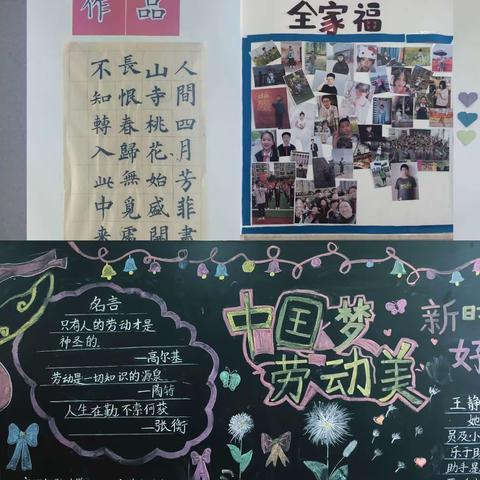 作品
人間四月芳菲盡
山寺桃花始盛開
長恨春歸無覓處
不知轉入此中来
全家福
名言
只有人的劳动才是
神圣的。
—高尔基
劳动是一切知识的源泉
—陶铸
人生在勤,不索何获
—张衡
中国梦
劳动美
新时
好
王静
她
员及小
乐于助
助手是